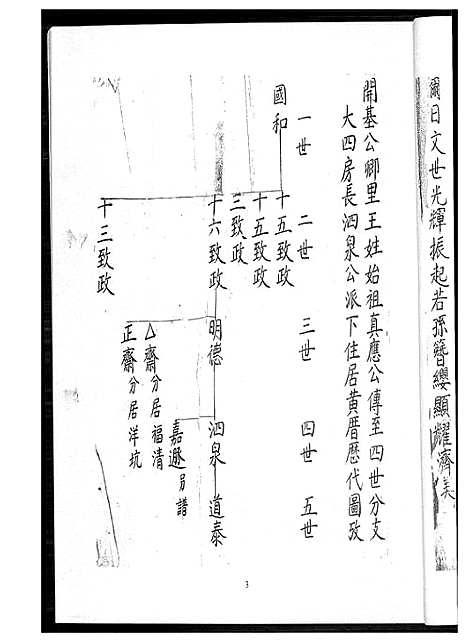 爾日文世光輝振起若孫簪纓顯耀濟美
開基公鄉里王姓始祖真應公傳至四世分支
大四房長泗泉公派下住居黄厝歷代圖攷
一世 二世 三世 四世 五世
國和
十五致政
十五致政
三致政
十六致政 明德 泗泉 道泰
嘉遯另譜
△齋分居福清
正齋分居洋坑
十三致政
3